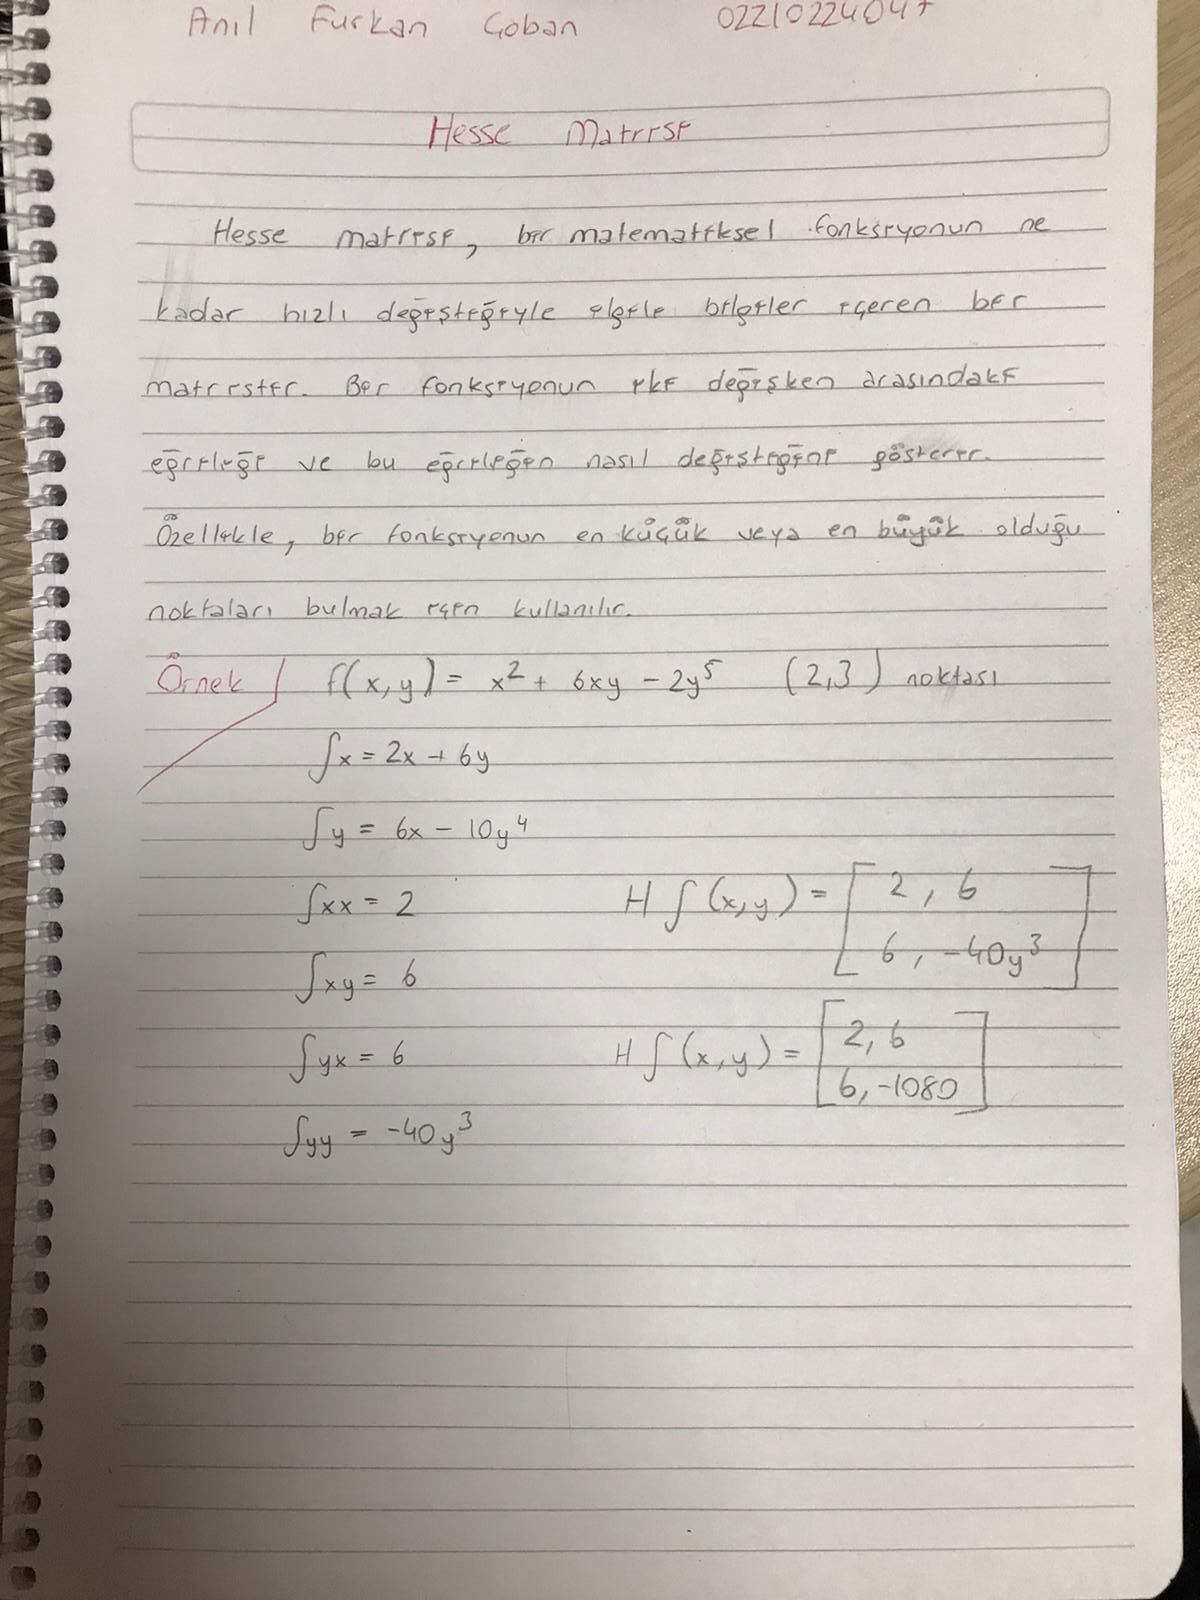 Anıl Furkan Çoban 02210224047
Hesse Matrisi
Hesse matrisi, bir matematiksel fonksiyonun ne
kadar hızlı değiştiğiyle ilgili bilgiler içeren bir
matristir. Bir fonksiyonun iki değişken arasındaki
eğriliği ve bu eğriliğin nasıl değiştiğini gösterir.
Özellikle, bir fonksiyonun en küçük veya en büyük olduğu
noktaları bulmak için kullanılır.
Örnek f(x,y) = x² + 6xy - 2y⁵ (2,3) noktası
fx = 2x + 6y
fy = 6x - 10y⁴
fxx = 2 Hf(x,y) = [2, 6
6, -40y³]
fxy = 6
fyx = 6 Hf(x,y) = [2, 6
6, -1080]
fyy = -40y³